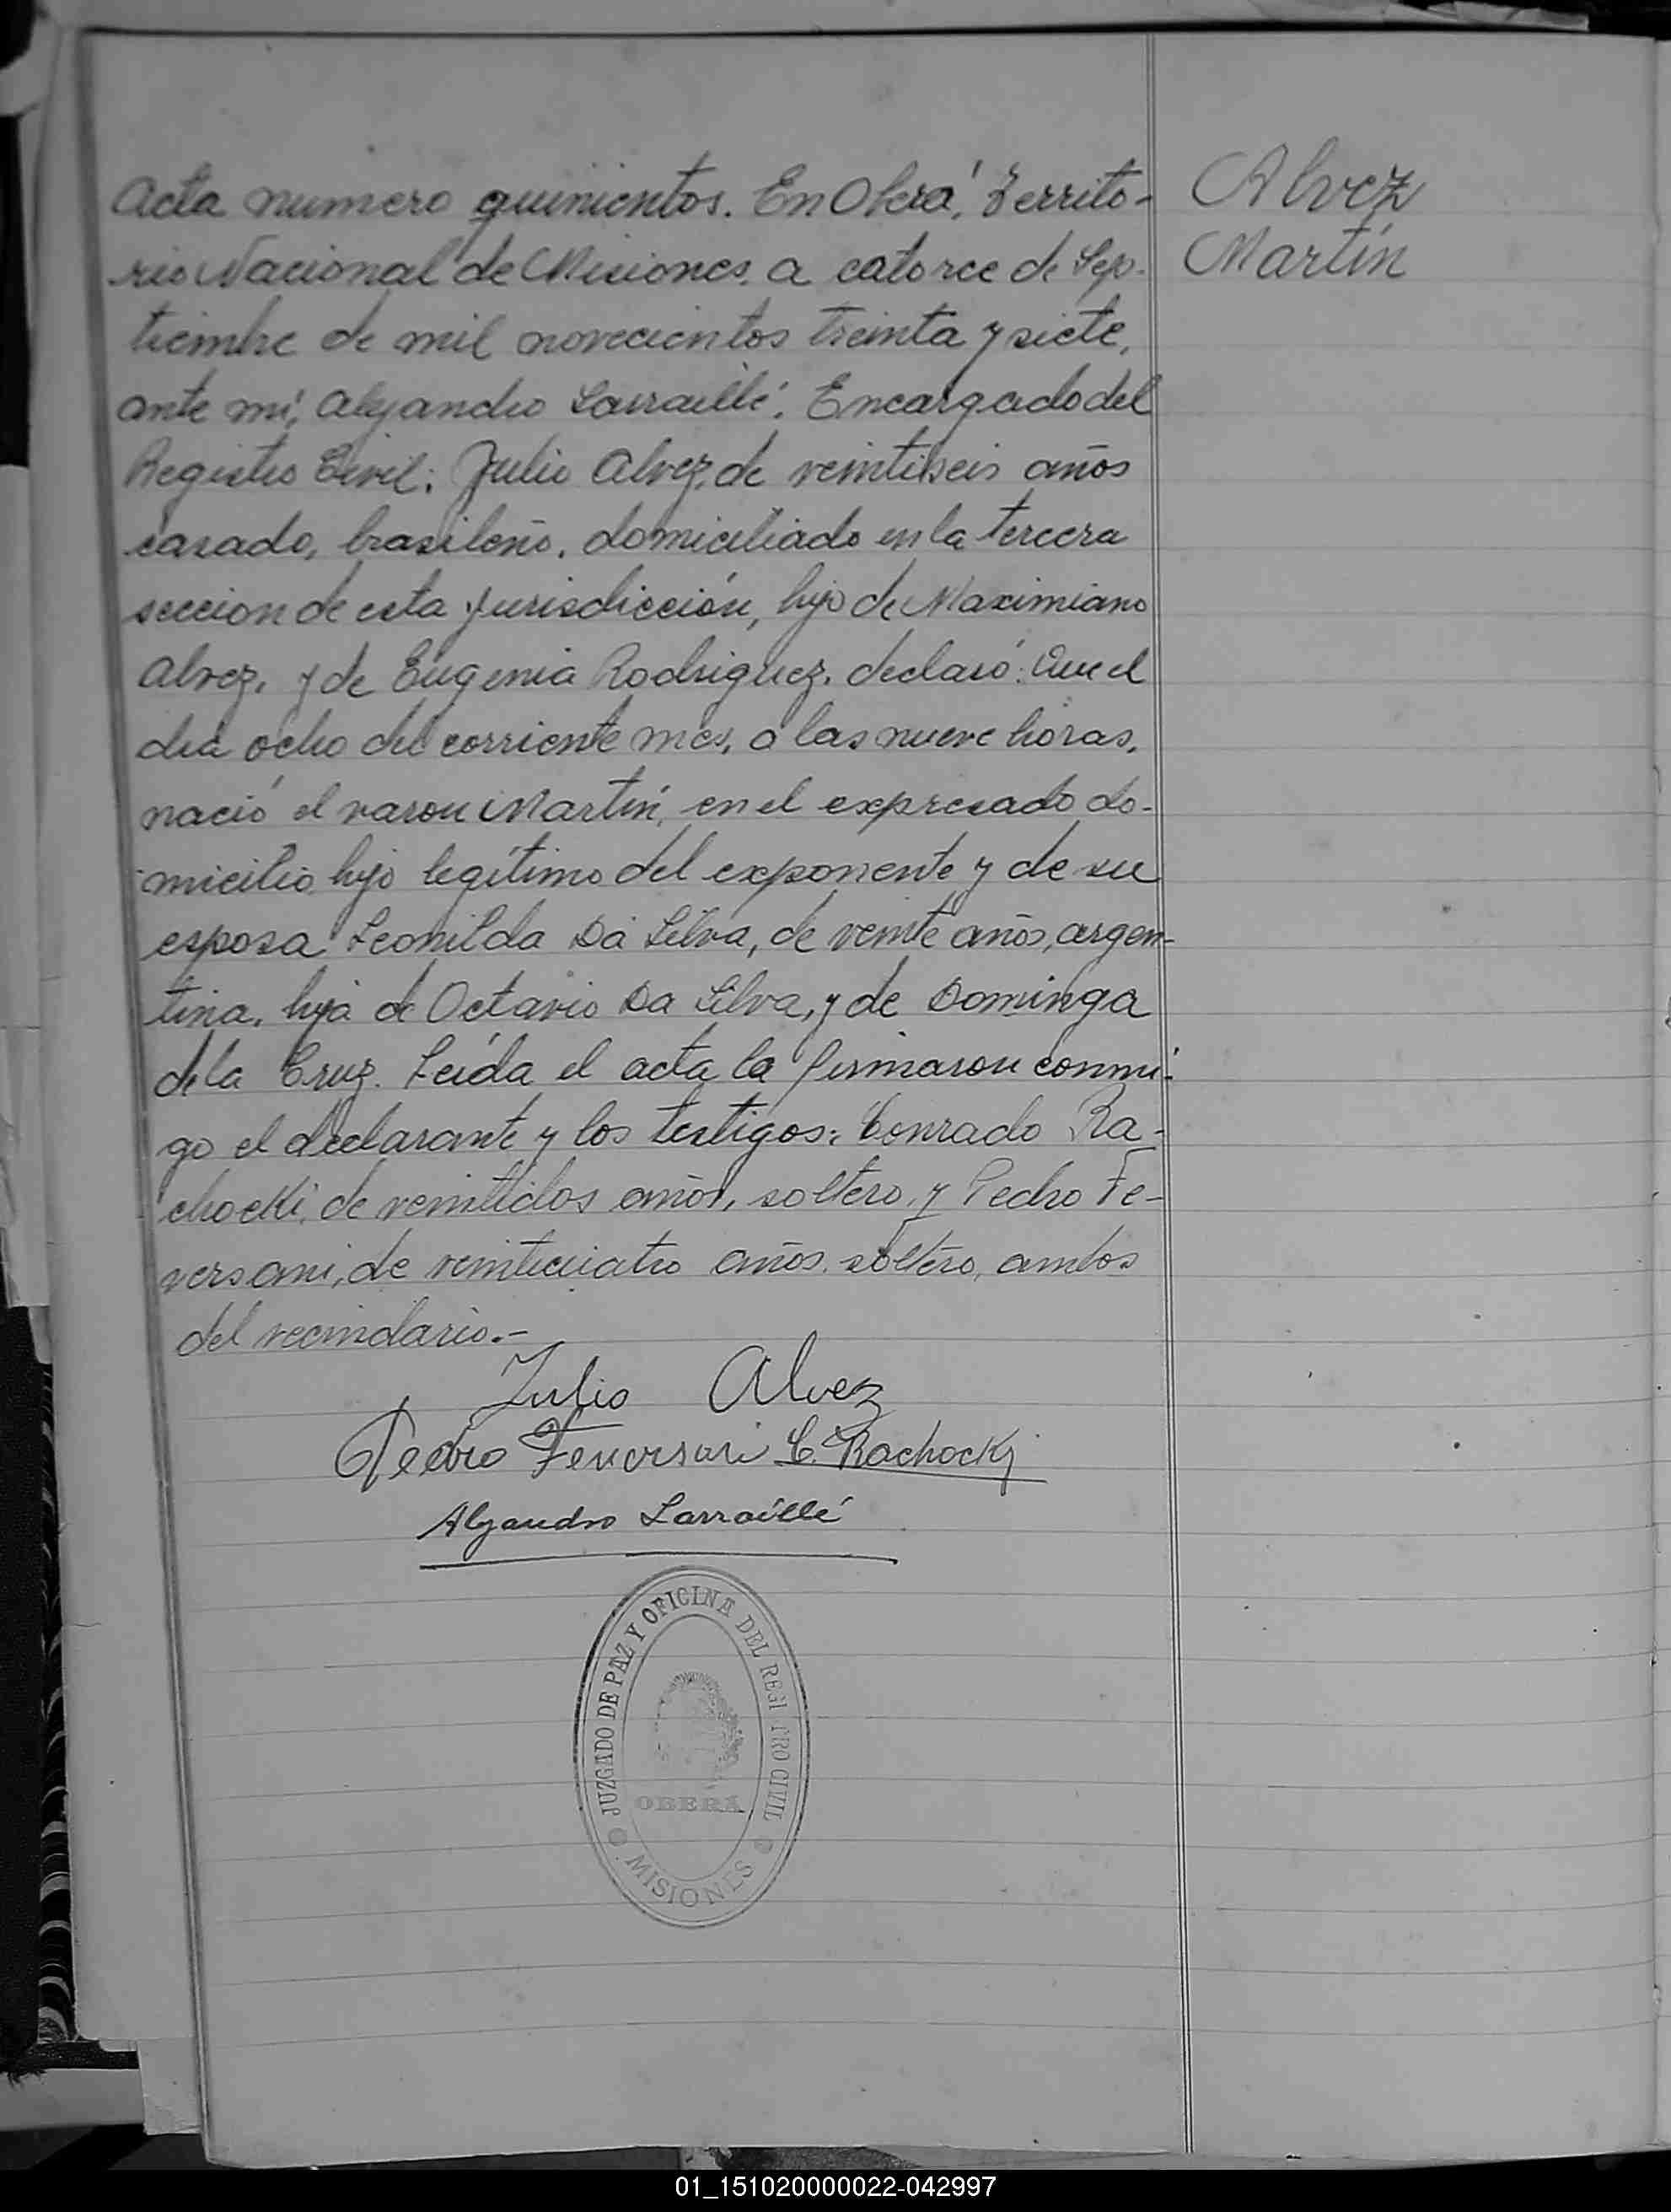 Acta numero quinientos. En Oberá, Territo-
rio Nacional de Misiones, a catorce de Sep-
tiembre de mil novecientos treinta y siete,
ante mí, Alejandro Larraillé, Encargado del
Registro Civil: Julio Alvez, de veintiseis años
casado, brasileño, domiciliado en la tercera
seccion de esta jurisdicción, hijo de Maximiano
Alvez, y de Eugenia Rodriguez, declaró: Que el
dia ocho del corriente mes, a las nueve horas,
nació el varon Martín, en el expresado do-
micilio hijo legítimo del exponente y de su
esposa Leonilda Da Silva, de veinte años, argen-
tina, hija de Octavio Da Silva, y de Dominga
de la Cruz. Leída el acta la firmaron conmi-
go el declarante y los testigos: Conrado Ra-
chocki, de veintidos años, soltero, y Pedro Fe-
versani, de veinticuatro años, soltero, ambos
del vecindario.-
Julio Alvez
Pedro Feversani C. Rachocki
Alejandro Larraillé
JUZGADO DE PAZ Y OFICINA DEL REGI TRO CIVIL
OBERA
MISIONES
Alvez
Martín
01_151020000022-042997